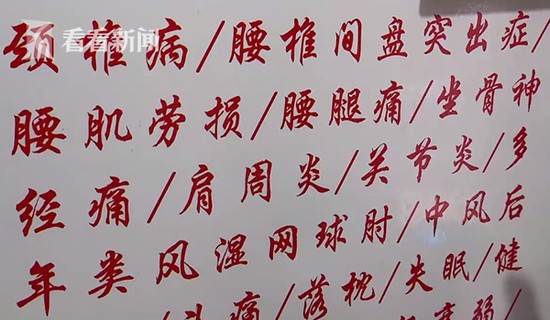 看看新闻
颈椎病/腰椎间盘突出症/
腰肌劳损/腰腿痛/坐骨神
经痛/肩周炎/关节炎/多
年类风湿网球肘/中风后
头痛/落枕/失眠/健